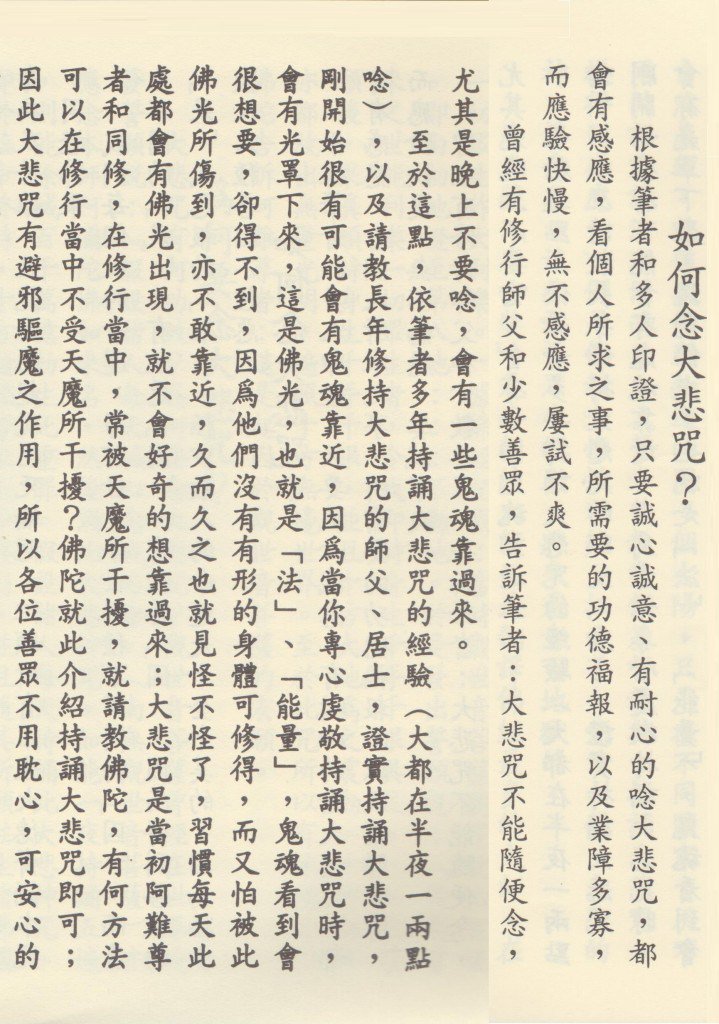 如何念大悲咒？
根據筆者和多人印證，只要誠心誠意、有耐心的唸大悲咒，都
會有感應，看個人所求之事，所需要的功德福報，以及業障多寡，
而應驗快慢，無不感應，屢試不爽。
曾經有修行師父和少數善眾，告訴筆者：大悲咒不能隨便念，
尤其是晚上不要唸，會有一些鬼魂靠過來。
至於這點，依筆者多年持誦大悲咒的經驗（大都在半夜一兩點
唸），以及請教長年修持大悲咒的師父、居士，證實持誦大悲咒，
剛開始很有可能會有鬼魂靠近，因爲當你專心虔敬持誦大悲咒時，
會有光罩下來，這是佛光，也就是「法」、「能量」，鬼魂看到會
很想要，卻得不到，因爲他們沒有有形的身體可修得，而又怕被此
佛光所傷到，亦不敢靠近，久而久之也就見怪不怪了，習慣每天此
處都會有佛光出現，就不會好奇的想靠過來；大悲咒是當初阿難尊
者和同修，在修行當中，常被天魔所干擾，就請教佛陀，有何方法
可以在修行當中不受天魔所干擾？佛陀就此介紹持誦大悲咒即可；
因此大悲咒有避邪驅魔之作用，所以各位善眾不用耽心，可安心的